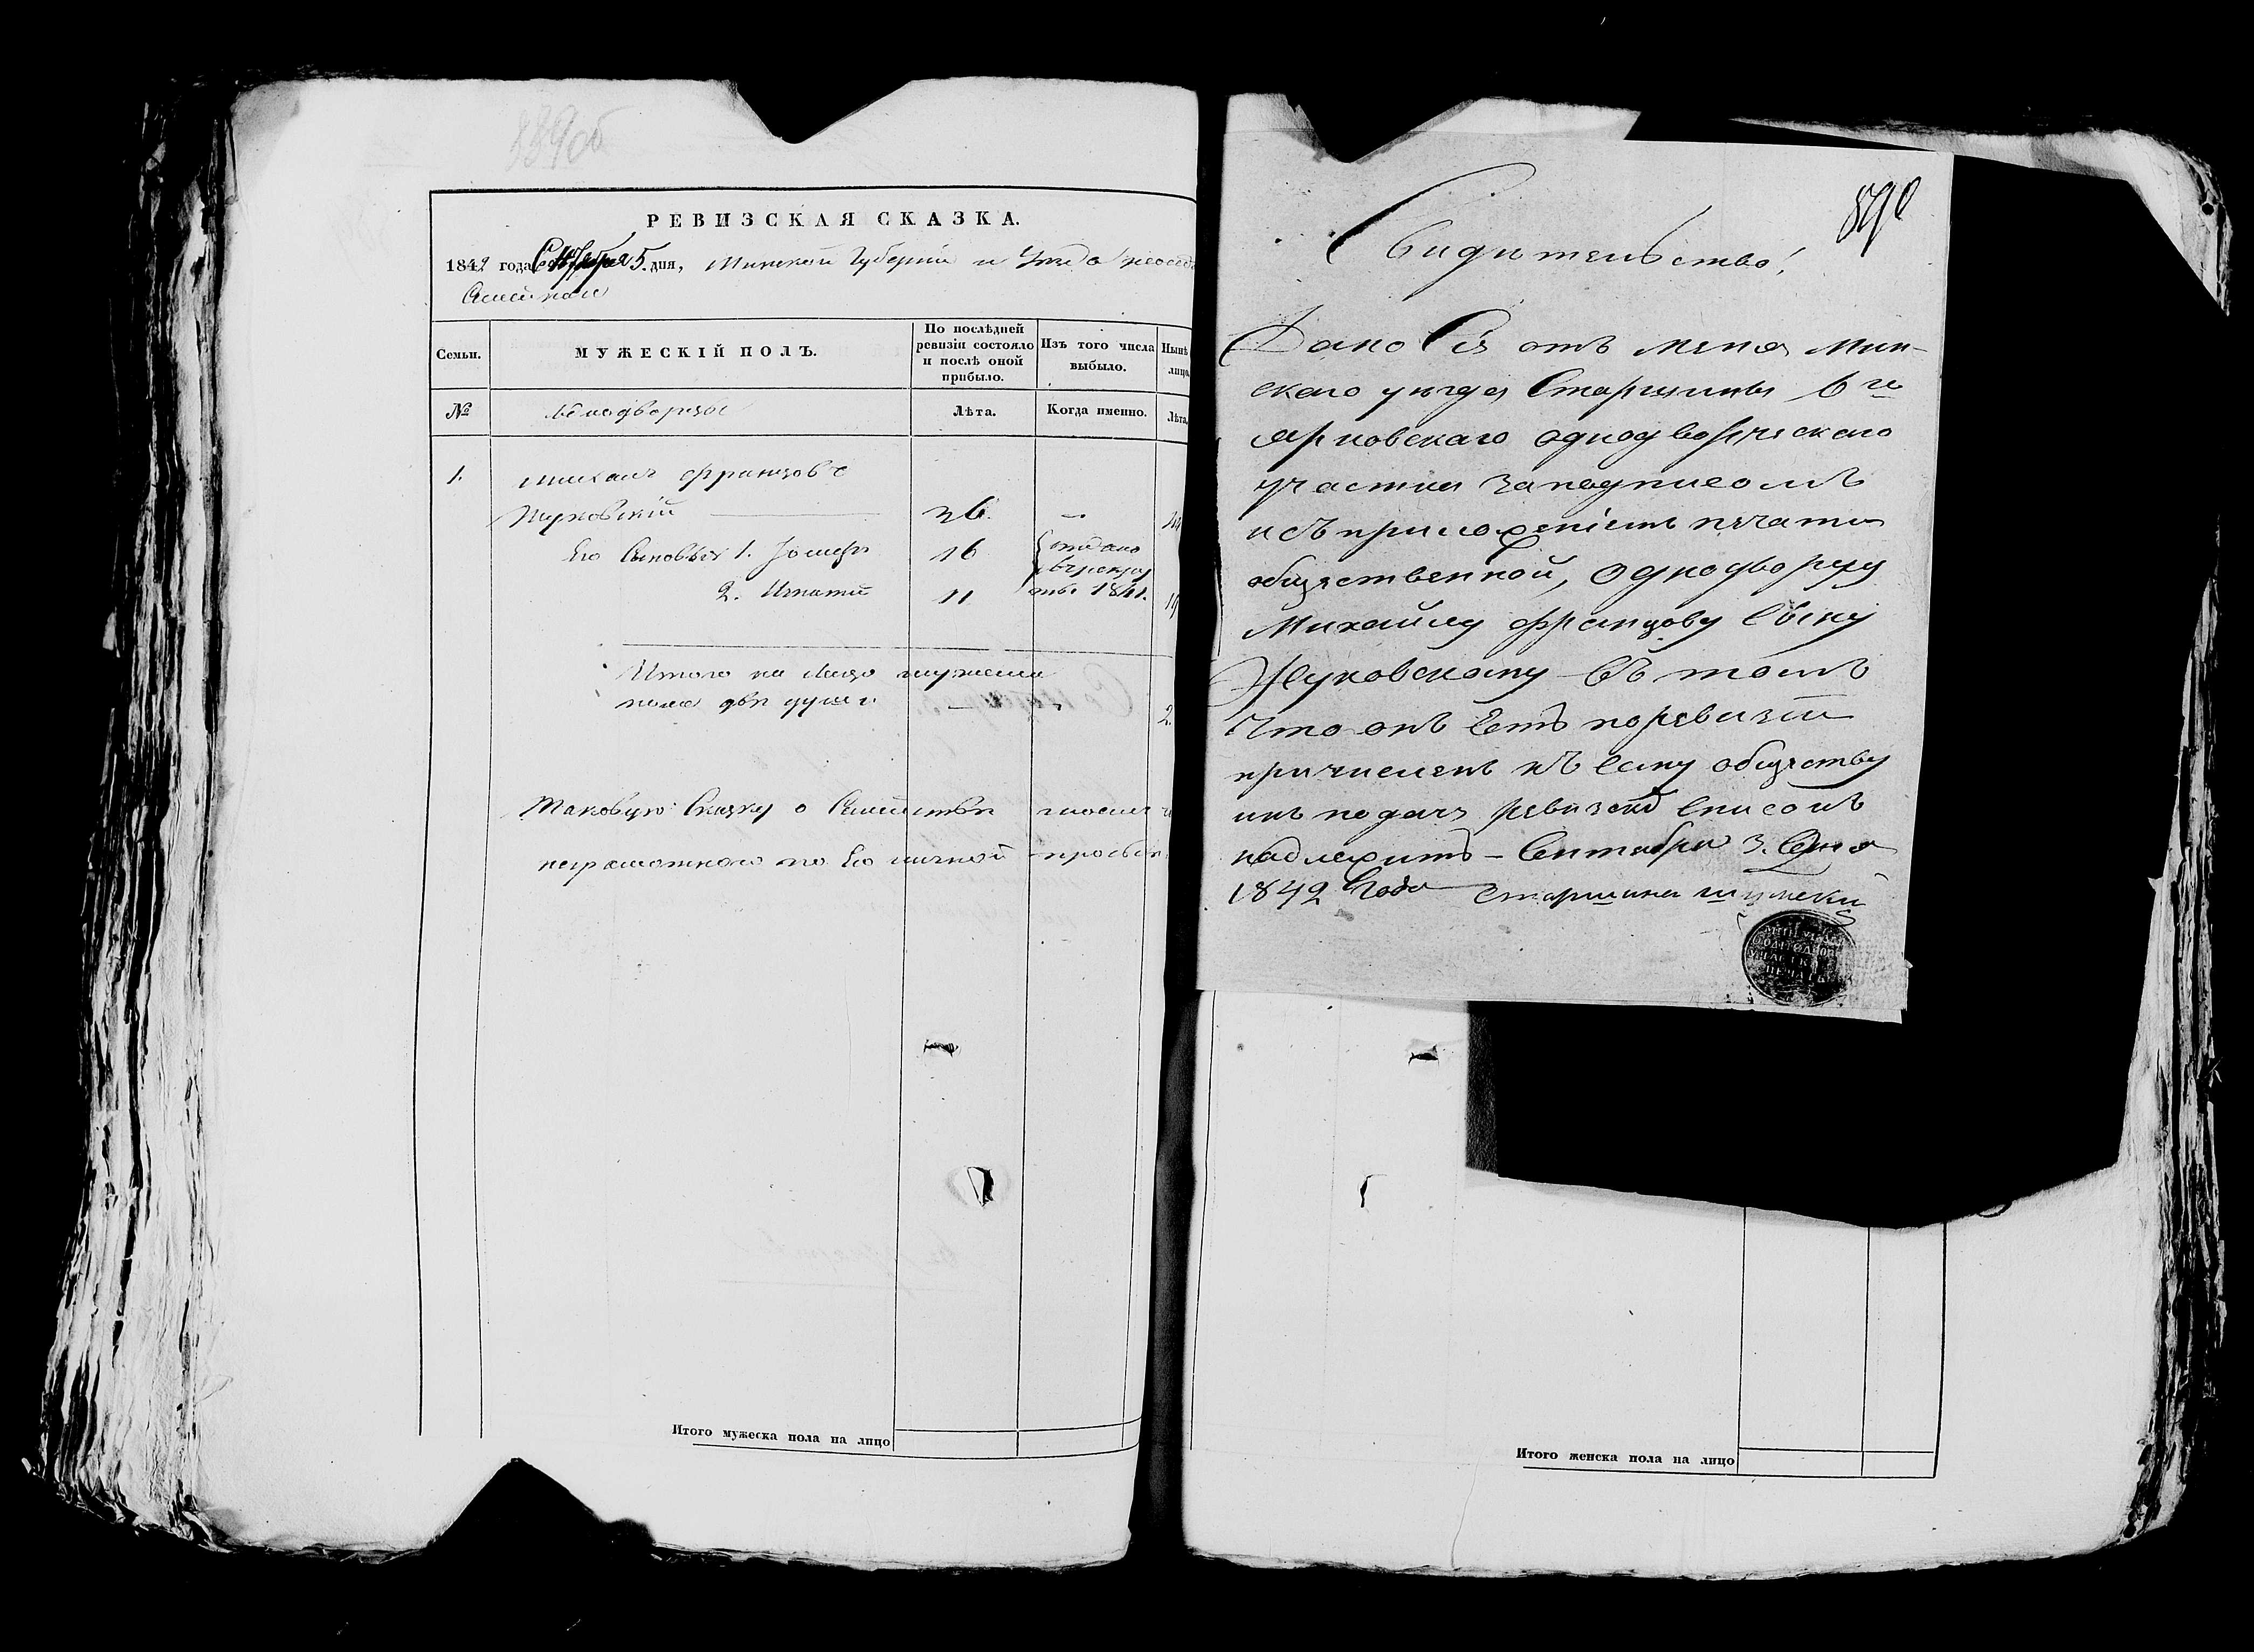 РЕВИЗСКАЯ СКАЗКА.
1842 года Сентября 5. дня, Минской Губерніи и Уѣзда
Семьи. МУЖЕСКІЙ ПОЛЪ. По послѣдней ревизіи состояло и послѣ оной прибыло. Изъ того числа выбыло.
№ Лѣта. Когда именно. Лѣта
1. Михалъ Францовъ
Жуковскій 36. —
Его Сыновья 1. Іосифъ 16 отданъ
2. Игнатій 11 1841.
Итого на лицо мужеска
пола двѣ души — 2.
Таковую Сказку о Семействѣ
неграмотнаго по Его личной просьбѣ
Итого мужеска пола на лицо
Свидѣтельство!
Дано Сіе отъ меня Мин-
скаго уѣзда Старшины 6 го
одноворческаго
участка заподписомъ
исъ приложеніемъ печати
общественной, Однодворцу
Михайлу Францову Сыну
Жуковскому въ томъ
Что онъ Есть поревизіи
причисленъ къ сему обществу
списокъ
надлежитъ – Сентября 3. Дня
1842 Года Старшина
Итого женска пола на лицо